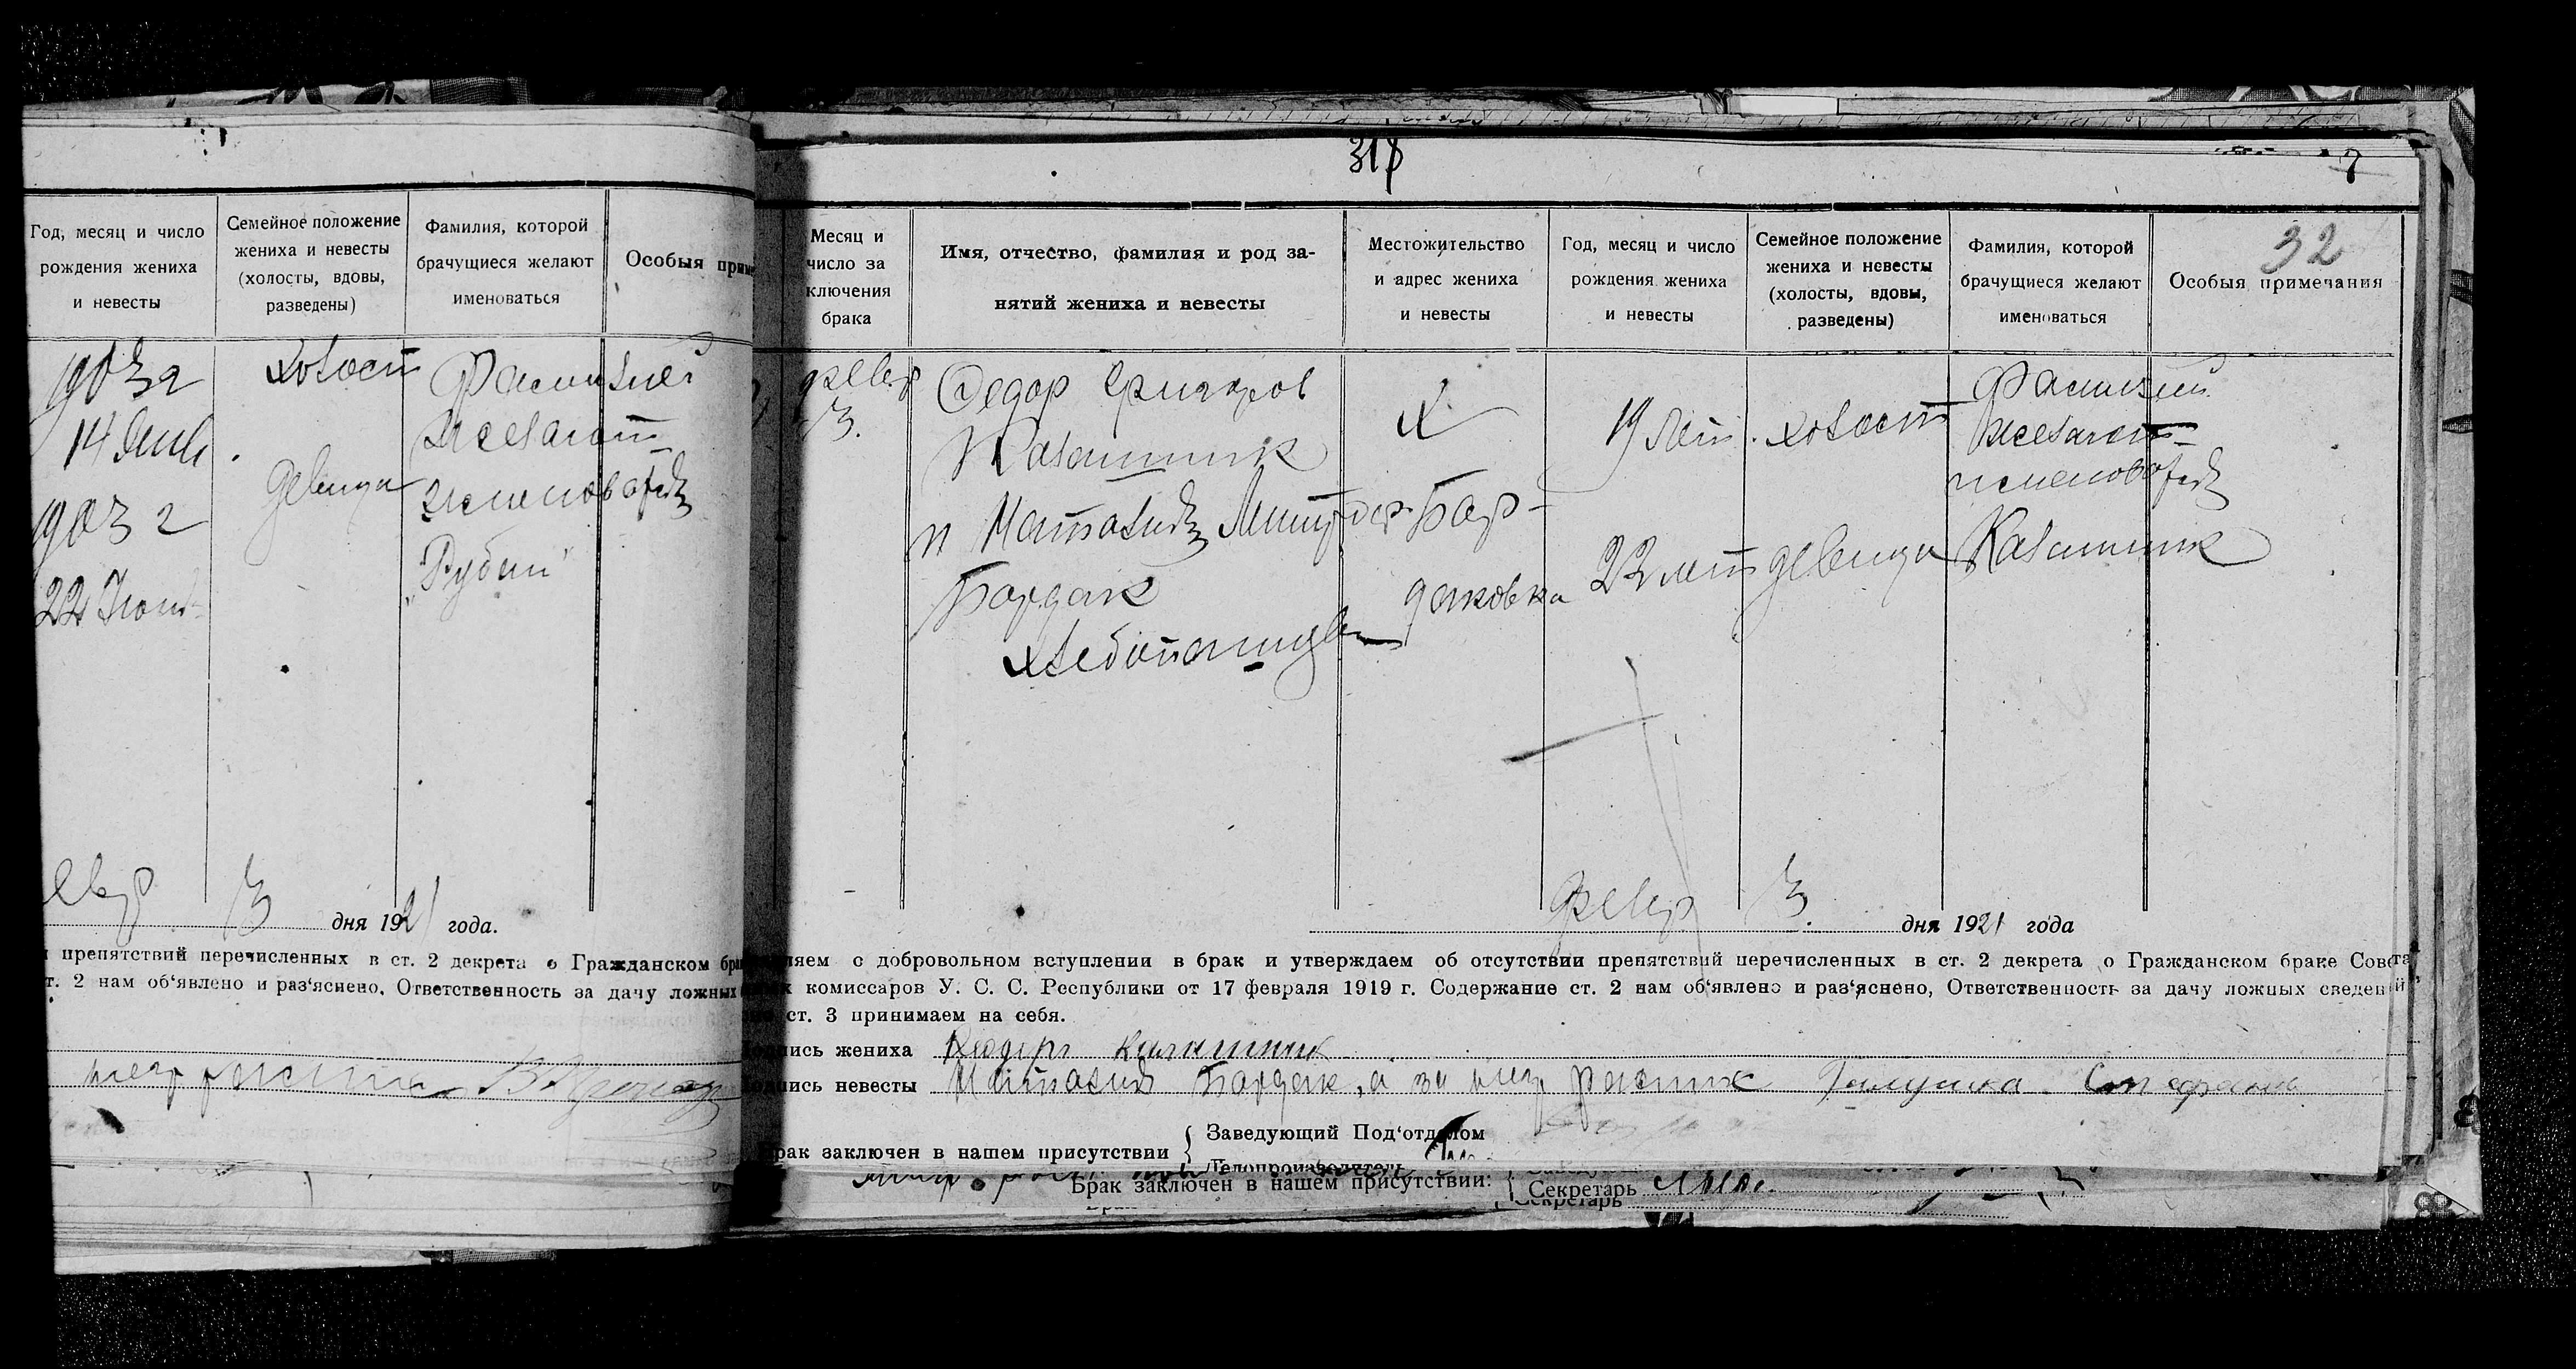 Год, месяц и число
рождения жениха
и невесты
Семейное положение
жениха и невесты
(холосты, вдовы,
разведены)
Фамилия, которой
брачущиеся желают
именоваться
Особыя
1903 г
14 Янв
1903 г
22
холост
девица
Фамилией
желают
именоватся
"Рубан"
3 дня 1921 года.
препятствий перечисленных в ст. 2 декрета о Гражданском
ст. 2 нам об‘явлено и раз‘яснено. Ответственность за дачу ложных
318
7
32
Месяц и
число за
ключения
брака
Имя, отчество, фамилия и род за-
нятий жениха и невесты
Местожительство
и адрес жениха
и невесты
Год, месяц и число
рождения жениха
и невесты
Семейное положение
жениха и невесты
(холосты, вдовы,
разведены)
Фамилия, которой
брачущиеся желают
именоваться
Особыя примечания
февр
3.
Федор Григоров
Калашник
и Наталия
Бардак
хлебопашцы
х
Бар-
даковка
19 лет.
22 лет
холост
девица
Фамилией
желают
именоватся
Калашник
февр 3. дня 1921 года
с добровольном вступлении в брак и утверждаем об отсутствии препятствий перечисленных в ст. 2 декрета о Гражданском браке Совета
комиссаров У. С. С. Республики от 17 февраля 1919 г. Содержание ст. 2 нам об‘явлено и раз‘яснено, Ответственность за дачу ложных сведений
ст. 3 принимаем на себя.
подпись жениха Федор Калашник
подпись невесты Наталия Бардак, а за негр распис Стефан
Брак заключен в нашем присутствии { Заведующий Под‘отделом
Делопроизводитель
Брак заключен в нашем присутствии:
Секретарь
Секретарь